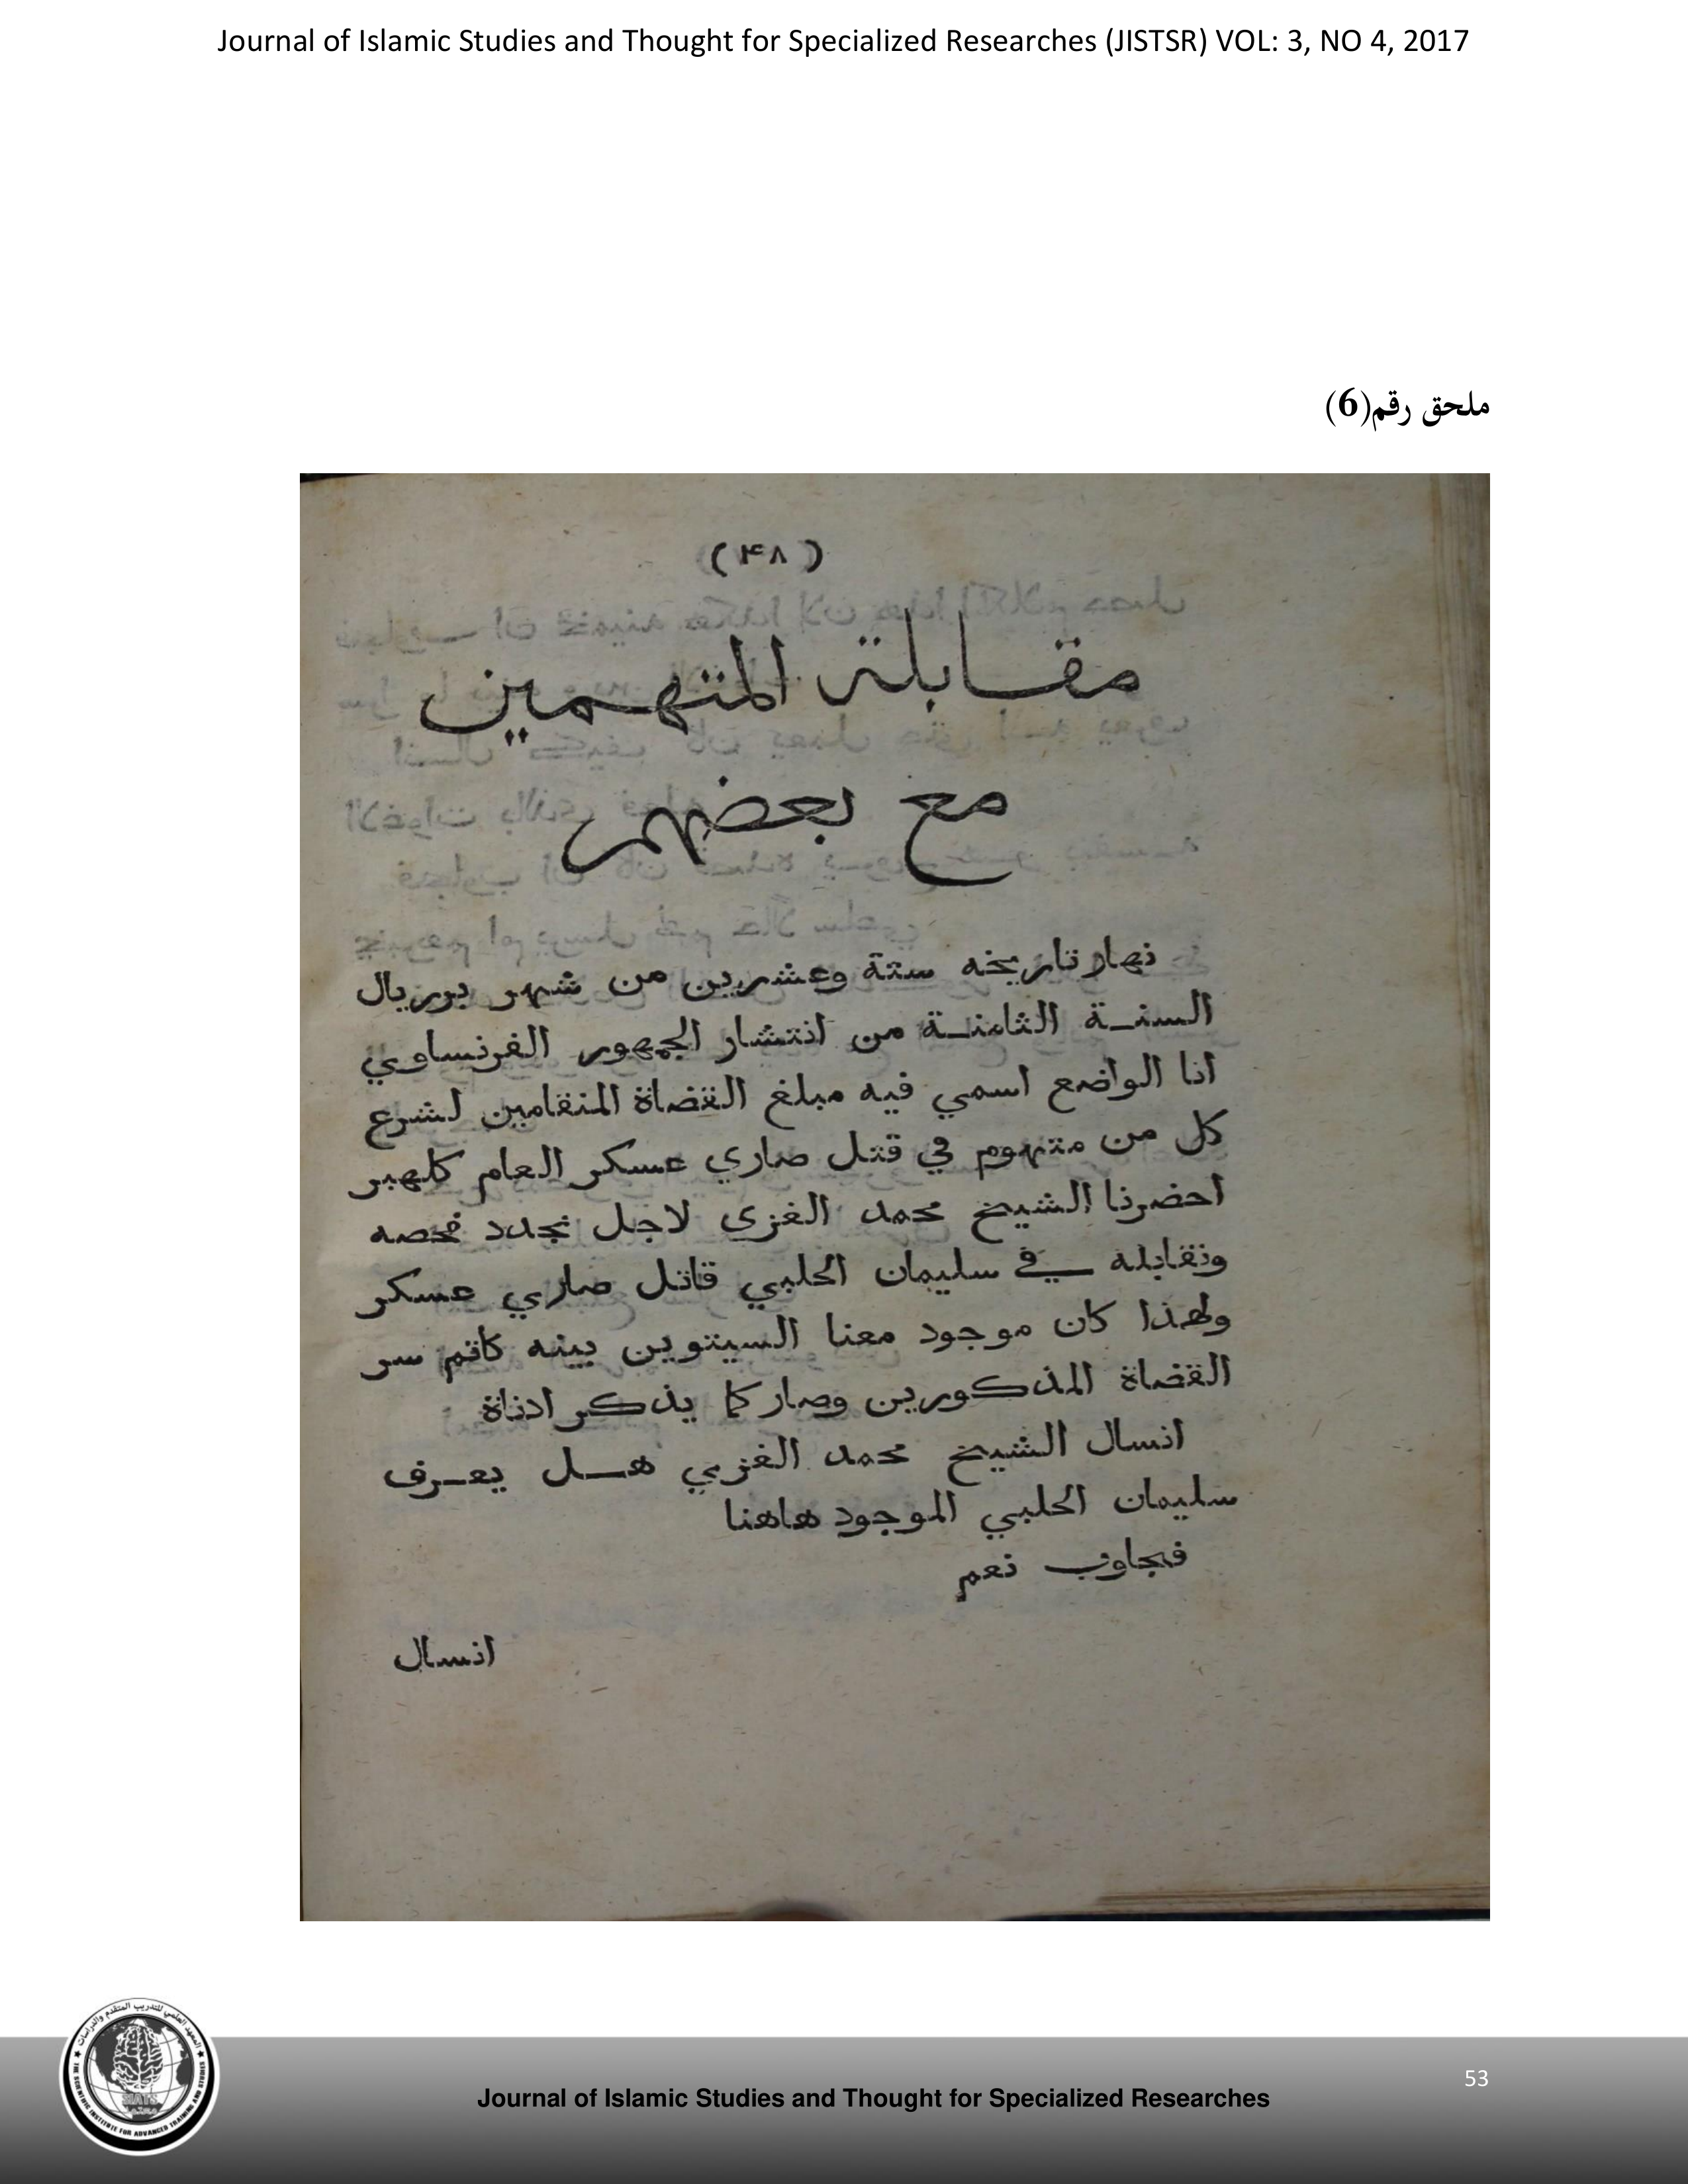 Journal of Islamic Studies and Thought for Specialized Researches (JISTSR) VOL: 3, NO 4, 2017
ملحق رقم(6)
(۴۸)
مقابلة المتهمين
مع بعضهم
نهار تاريخه ستة وعشرين من شهر بوريال
السنة الثامنة من انتشار الجمهور الفرنساوي
انا الواضع اسمي فيه مبلغ القضاة المنقامين لشرع
كل من متهوم في قتل صاري عسكر العام كلهبر
احضرنا الشيخ محمد الغزي لاجل نجدد فحصه
ونقابله في سليمان الحلبي قاتل صاري عسكر
ولهذا كان موجود معنا السيتوين بينه كاتم سر
القضاة المذكورين وصار كما يذكر ادناة
انسال الشيخ محمد الغزي هل يعرف
سليمان الحلبي الموجود هاهنا
فجاوب نعم
انسال
المعهد العلمي للتدريب المتقدم والدراسات
THE SCIENTIFIC INSTITUTE FOR ADVANCED TRAINING AND STUDIES
SIATS
53
Journal of Islamic Studies and Thought for Specialized Researches